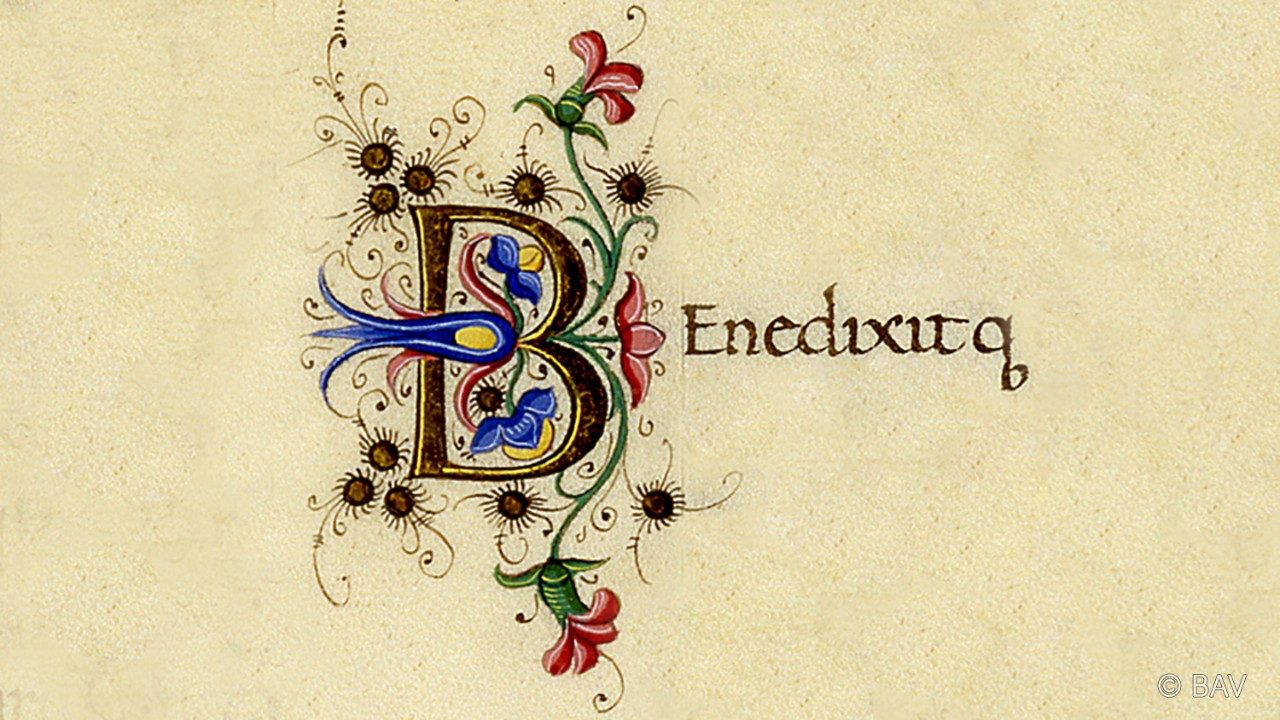 BEnedixitqꝫ
© BAV